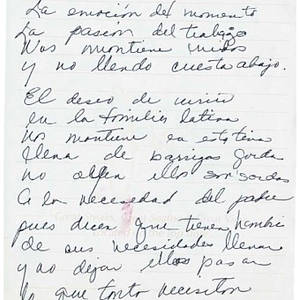 La emoción del momento
La pasión del trabajo
Nos mantiene unidos
y no llendo cuesta abajo.
El deseo de vivir
en la familia latina
nos mantiene en esta
llena de barrigas gorda
no ellos son sordos
A la necesidad del padre
pues dicen que tienen hambre
de sus necesidades llenar
y no dejar ellos pasar
lo que tanto necesitan